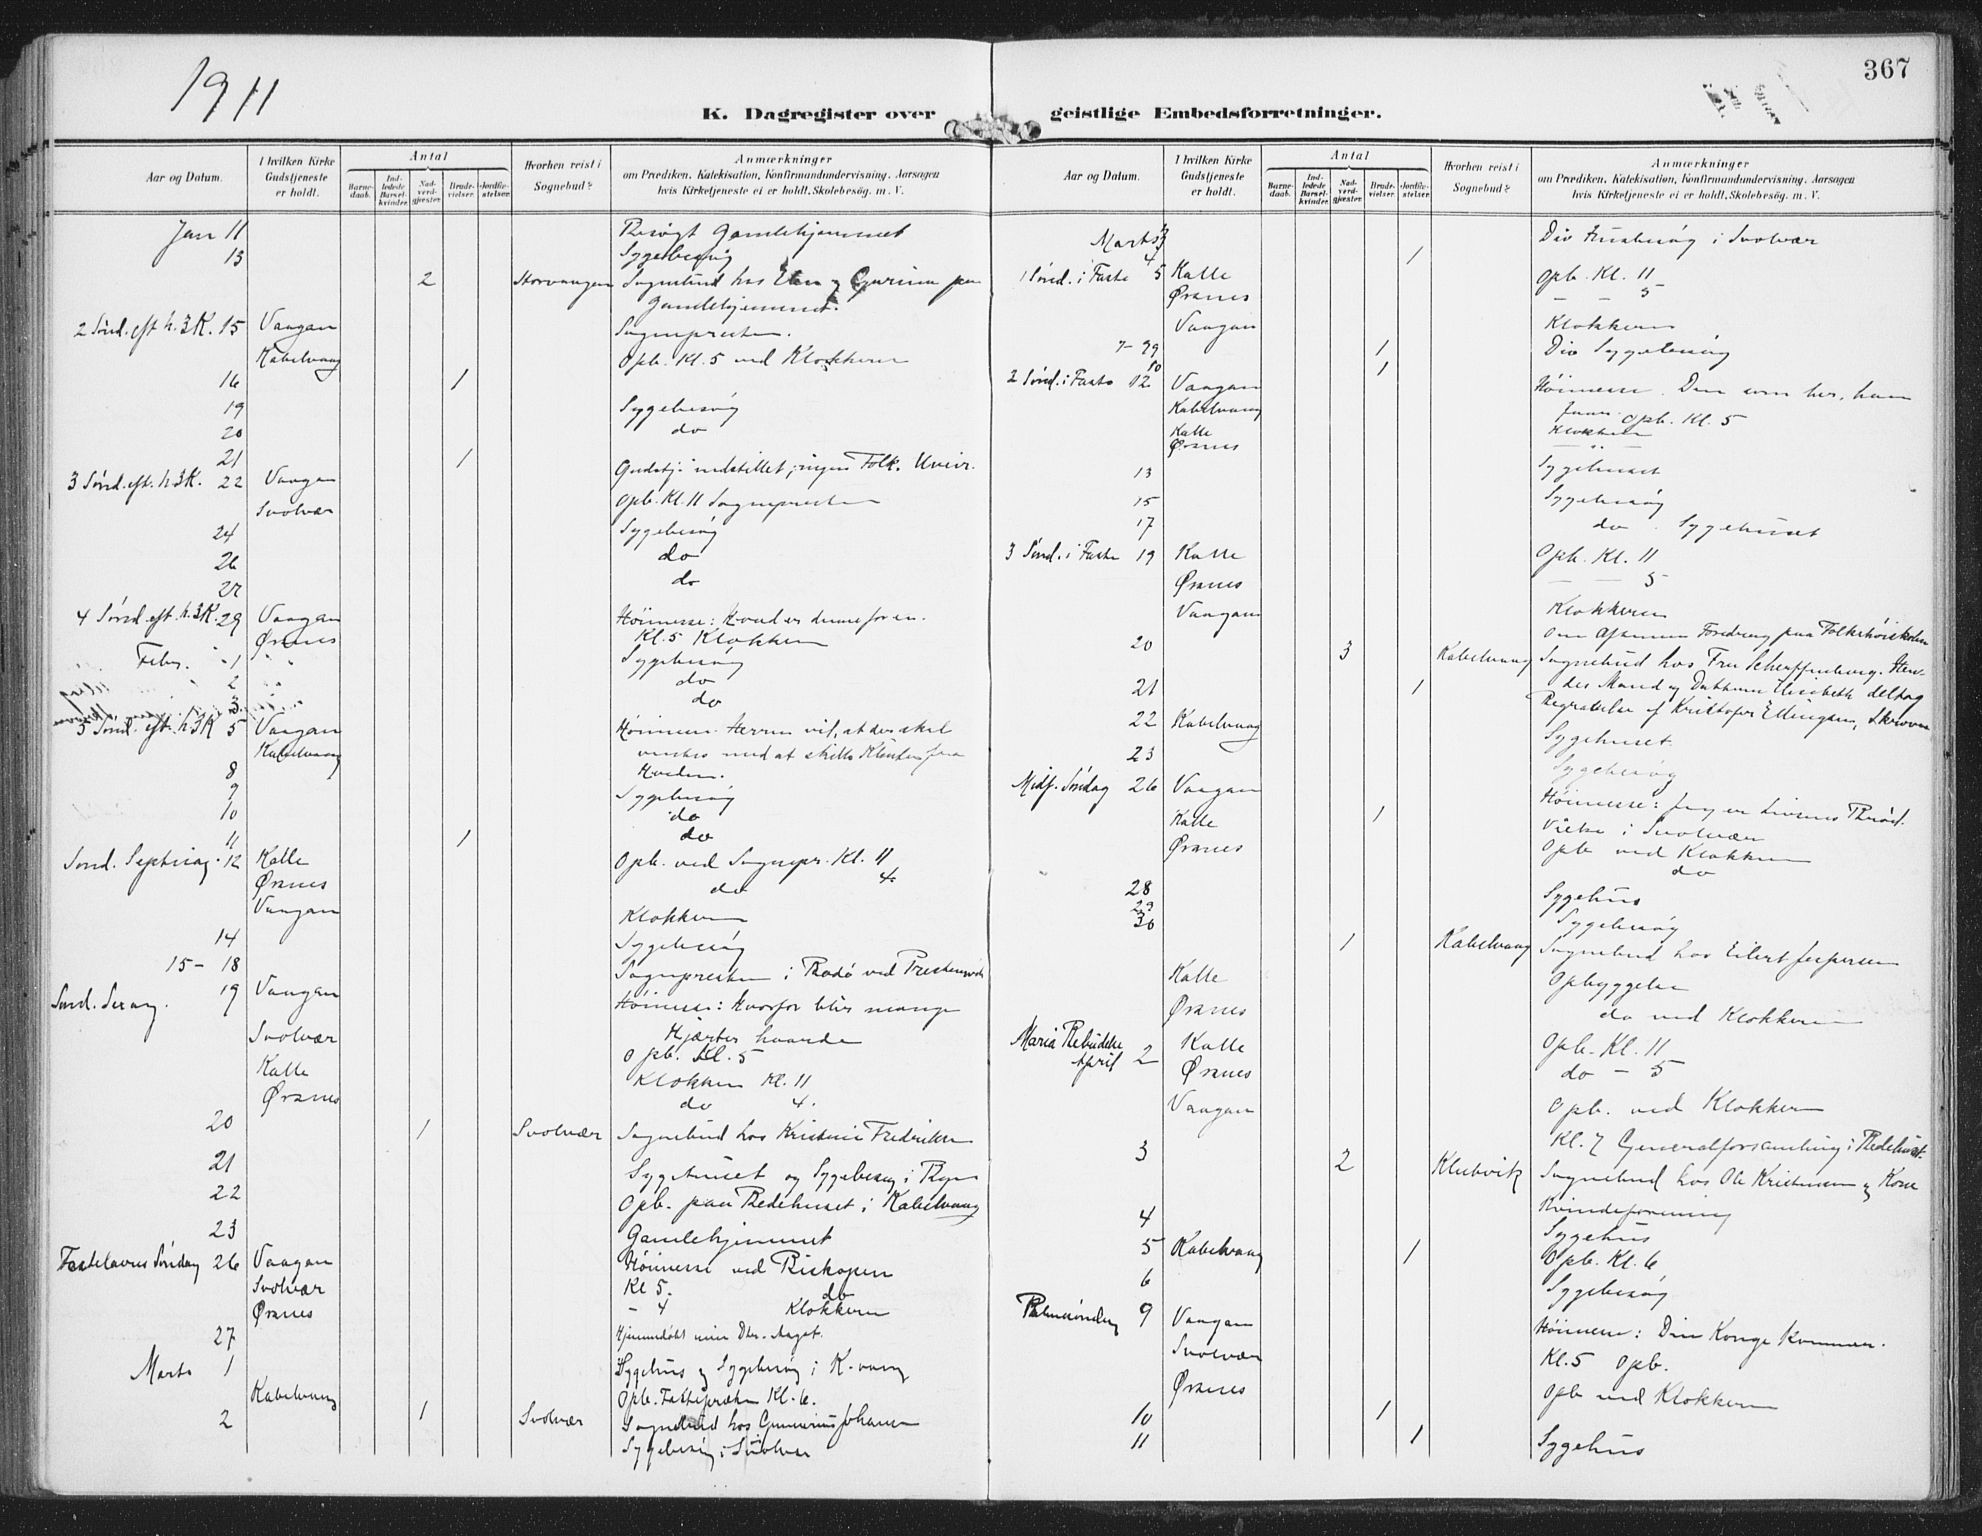 1911
367
K. Dagregister over geistlige Embedsforretninger.
Aar og Datum.
I hvilken Kirke Gudstjeneste er holdt.
Antal
Barnedaab.
Indledede Barselkvinder.
Nadverdgjester.
Brudevielser.
Jordfæstelser.
Hvorhen reist i Sognebud?
Anmærkninger
om Prædiken, Katekisation, Konfirmandundervisning, Aarsagen
hvis Kirketjeneste ei er holdt, Skolebesøg. m. V.
Jan 11 Besøgt Gamlehjemmet
13 Sygebesøg
2 Storvaagen Sognebud hos
Gamlehjemmet.
2 Sønd. eft h. 3 K. 15 Vaagan Sognepresten.
Kabelvaag Opb. Kl. 5 ved Klokkeren
16 1
19 Sygebesøg
20 do
21 1
3 Sønd. eft. h. 3 K. 22 Vaagan Gudstj. indstillet, ingen Folk. Uveir.
Svolvær Opb. Kl. 11 Sognepresten
24 Sygebesøg
26 do
27 do
4 Sønd. eft. h. 3 K. 29 Vaagan Høimesse: Hvad er denne for en.
Ørsnes Kl. 5 Klokkeren
Febr. 1 Sygebesøg
2 do
3 do
5 Sønd. eft. h. 3 K 5 Vaagan Høimesse. Herren vil, at der skal
Kabelvaag ventes med at skille Klinten fra
8 Hveden.
9 Sygebesøg
10 do
11 1 do
Sønd. Septuag. 12 Kalle Opb. ved Sognepr. Kl. 11
Ørsnes do 4.
Vaagan Klokkeren
14 Sygebesøg
15 - 18 Sognepresten i Bodø ved
Sønd. Sexag. 19 Vaagan Høimesse: Hvorfor blir mange
Hjærter haarde
Svolvær Opb. Kl. 5
Kalle Klokkeren Kl. 11
Ørsnes do 4.
20 1 Svolvær Sognebud hos Kristine Fredriksen
21 Sygehuset og Sygebesøg i Byen
22 Opb. paa Bedehuset i Kabelvaag
23 Gamlehjemmet
Fastelavns Søndag 26 Vaagan Høimesse ved Biskopen
Svolvær Kl 5. do
Ørsnes - 4 Klokkeren
27 Hjemmedøbt min Dtr. Aagot.
Marts 1 Sygehus og Sygebesøg i K-vaag
Kabelvaag Opb. Fasteprækn Kl. 6.
2 1 Svolvær Sognebud hos Johansen
Sygebesøg i Svolvær
Aar og Datum.
I hvilken Kirke Gudstjeneste er holdt.
Antal
Barnedaab.
Indledede Barselkvinder.
Nadverdgjester.
Brudevielser.
Jordfæstelser.
Hvorhen reist i Sognebud?
Anmærkninger
om Prædiken, Katekisation, Konfirmandundervisning, Aarsagen
hvis Kirketjeneste ei er holdt, Skolebesøg. m. V.
Marts 3 Div Husbesøg i Svolvær
4 1
1 Sønd. i Faste 5 Kalle Opb. Kl. 11
Ørsnes - - 5
Vaagan Klokkeren
7 - 9 1 Div Sygebesøg
10 1
2 Sønd. i Faste 12 Vaagan Høimesse. Den som har, ham
Kabelvaag Opb. Kl. 5
Kalle Klokkeren
Ørsnes
13 Sygehuset
15 Sygebesøg
17 do. Sygehuset
3 Sønd. i Faste 19 Kalle Opb. Kl. 11
Ørsnes - - 5
Vaagan Klokkeren
20 Om Aftenen Foredrag paa Folkehøiskolen
3 Kabelvaag Sognebud hos Fru Scharffenberg. Hen-
21 1 des Mand og Datteren Elisabeth deltog
22 Kabelvaag Begravelse af Kristofer Ellingsen, Skroven
Sygehuset.
23 Sygebesøg
Midf. Søndag 26 Vaagan Høimesse: Jeg er Livsens Brød.
Kalle 1 Vielse i Svolvær
Ørsnes Opb ved Klokkeren
do
28 Sygehus
29
30 Sygebesøg
1 Kabelvaag Sognebud hos Eilert Jespersen
Kalle Opbyggelse
Ørsnes do ved Klokkeren
Maria Bebudelse
April 2 Kalle Opb. Kl. 11
Ørsnes do - 5
Vaagan Opb. ved Klokkeren
3 Kl. 7 Generalforsamling i Bedehuset.
2 Klubvik Sognebud hos Ole Kristensen og Kone
4 Kvindeforening
Sygehus
5 Kabelvaag 1 Opb. Kl. 6
6 Sygebesøg
Palmesøndag 9 Vaagan Høimesse: Din Konge kommer.
Svolvær Kl. 5 Opb.
Ørsnes Opb ved Klokkeren
10 1
11 1 Sygehus